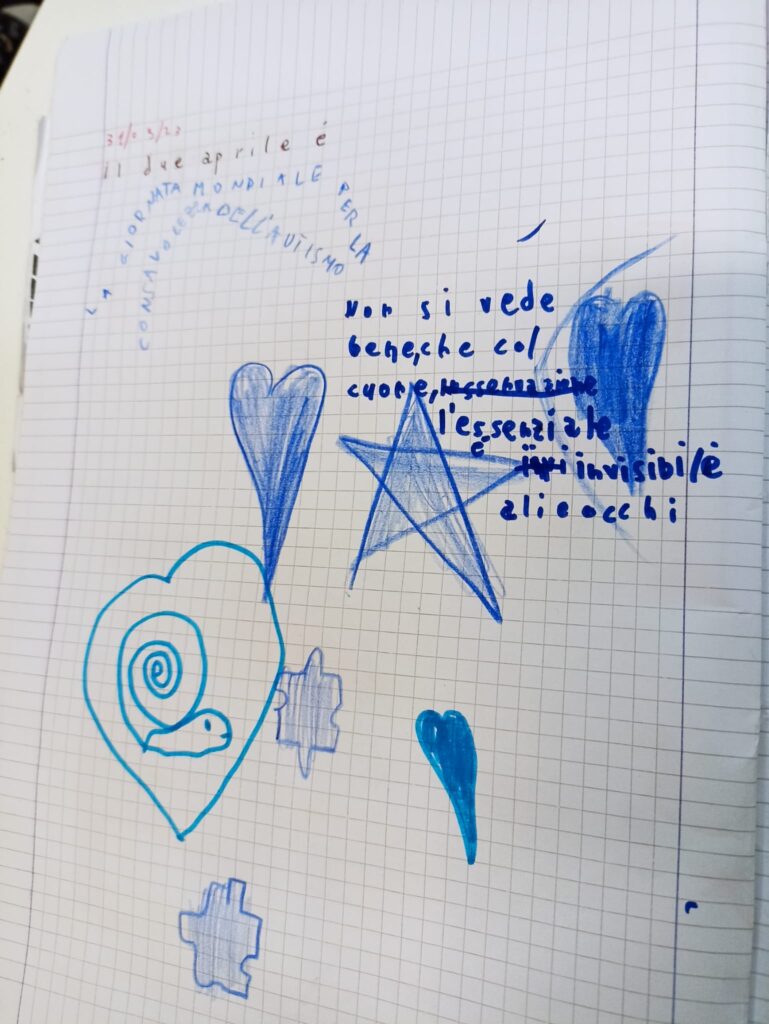 31/03/23
il due aprile è
LA GIORNATA MONDIALE PER LA
CONSAVOLEZZA DELL'AUTISMO
Non si vede
bene, che col
cuore,
l'essenziale
è invisibile
ali occhi